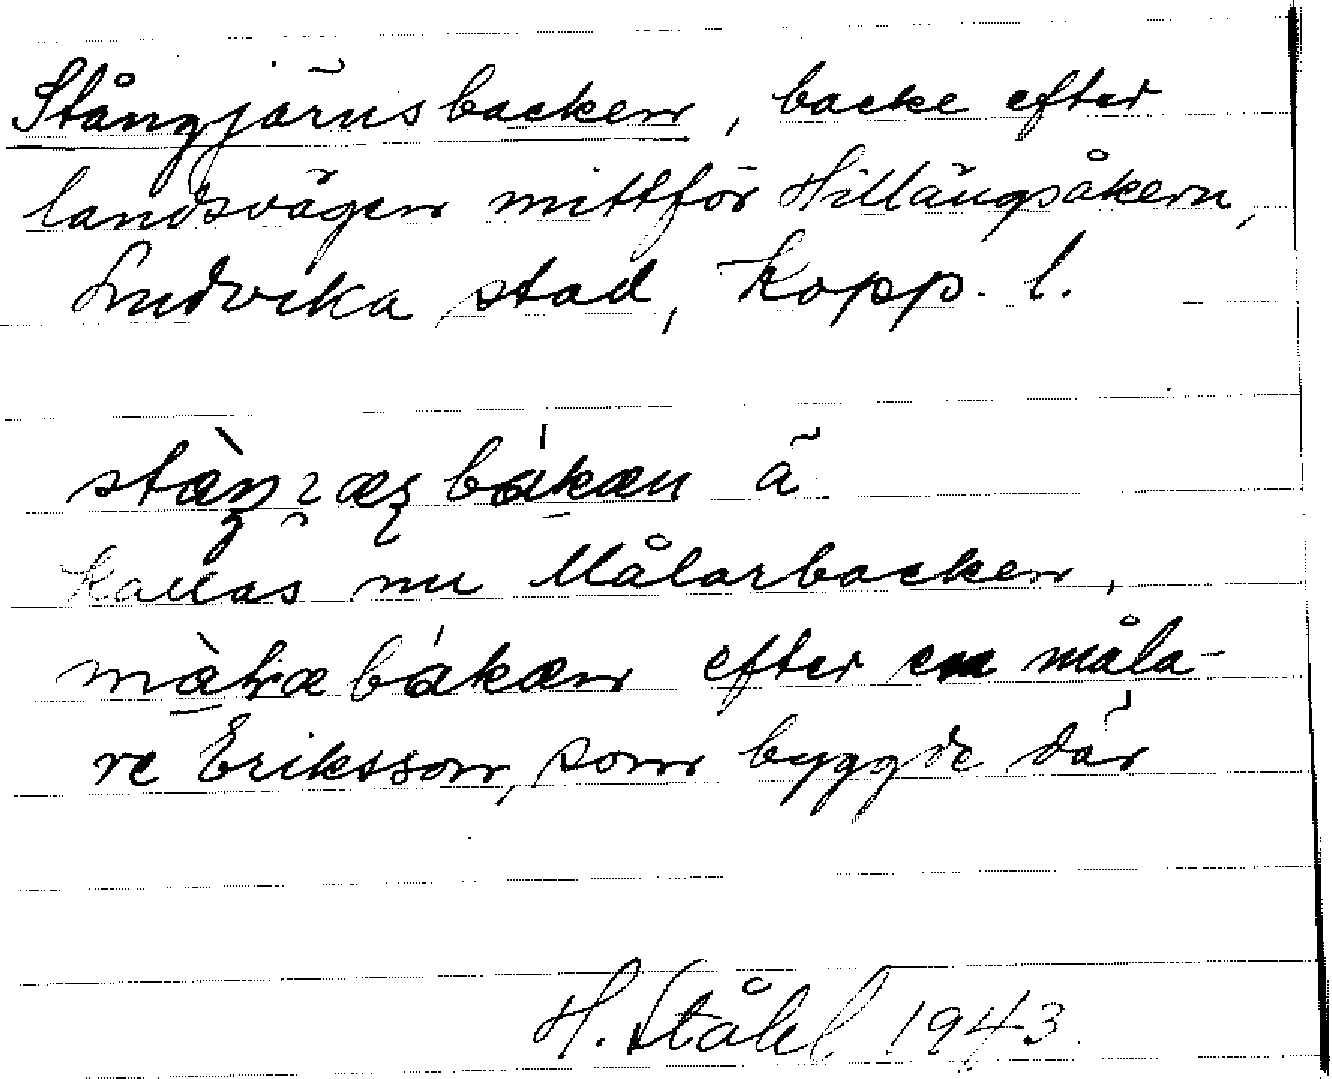 Stångjärnsbacken, backe efter
landsvägen mittför Hillängsåkern,
Ludvika stad, Kopp. l.
bákæn ä
Kallas nu Målarbacken,
bákæn efter en måla-
re Eriksson, som byggde där
H. Ståhl 1943